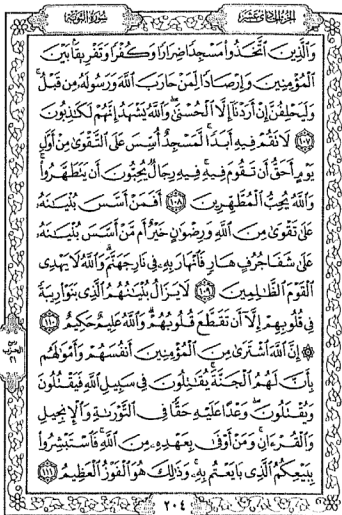 الجزء الحادي عشر
سورة التوبة
وَالَّذِينَ اتَّخَذُوا مَسْجِدًا ضِرَارًا وَكُفْرًا وَتَفْرِيقًا بَيْنَ
الْمُؤْمِنِينَ وَإِرْصَادًا لِّمَنْ حَارَبَ اللَّهَ وَرَسُولَهُ مِن قَبْلُ ۚ
وَلَيَحْلِفُنَّ إِنْ أَرَدْنَا إِلَّا الْحُسْنَىٰ ۖ وَاللَّهُ يَشْهَدُ إِنَّهُمْ لَكَاذِبُونَ
١٠٧ لَا تَقُمْ فِيهِ أَبَدًا ۚ لَّمَسْجِدٌ أُسِّسَ عَلَى التَّقْوَىٰ مِنْ أَوَّلِ
يَوْمٍ أَحَقُّ أَن تَقُومَ فِيهِ ۚ فِيهِ رِجَالٌ يُحِبُّونَ أَن يَتَطَهَّرُوا ۚ
وَاللَّهُ يُحِبُّ الْمُطَّهِّرِينَ ١٠٨ أَفَمَنْ أَسَّسَ بُنْيَانَهُ
عَلَىٰ تَقْوَىٰ مِنَ اللَّهِ وَرِضْوَانٍ خَيْرٌ أَم مَّنْ أَسَّسَ بُنْيَانَهُ
عَلَىٰ شَفَا جُرُفٍ هَارٍ فَانْهَارَ بِهِ فِي نَارِ جَهَنَّمَ ۗ وَاللَّهُ لَا يَهْدِي
الْقَوْمَ الظَّالِمِينَ ١٠٩ لَا يَزَالُ بُنْيَانُهُمُ الَّذِي بَنَوْا رِيبَةً
فِي قُلُوبِهِمْ إِلَّا أَن تَقَطَّعَ قُلُوبُهُمْ ۗ وَاللَّهُ عَلِيمٌ حَكِيمٌ ١١٠
۞ إِنَّ اللَّهَ اشْتَرَىٰ مِنَ الْمُؤْمِنِينَ أَنفُسَهُمْ وَأَمْوَالَهُم
بِأَنَّ لَهُمُ الْجَنَّةَ ۚ يُقَاتِلُونَ فِي سَبِيلِ اللَّهِ فَيَقْتُلُونَ
وَيُقْتَلُونَ ۖ وَعْدًا عَلَيْهِ حَقًّا فِي التَّوْرَاةِ وَالْإِنجِيلِ
وَالْقُرْآنِ ۚ وَمَنْ أَوْفَىٰ بِعَهْدِهِ مِنَ اللَّهِ ۚ فَاسْتَبْشِرُوا
بِبَيْعِكُمُ الَّذِي بَايَعْتُم بِهِ ۚ وَذَٰلِكَ هُوَ الْفَوْزُ الْعَظِيمُ ١١١
٢٠٤